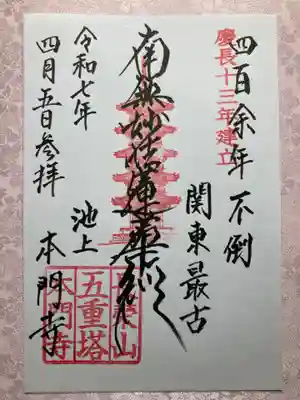 慶長十三年建立
四百余年不倒
関東最古
南無妙法蓮華経
池上
本門寺
令和七年
四月五日参拝
長栄山
五重塔
本門寺